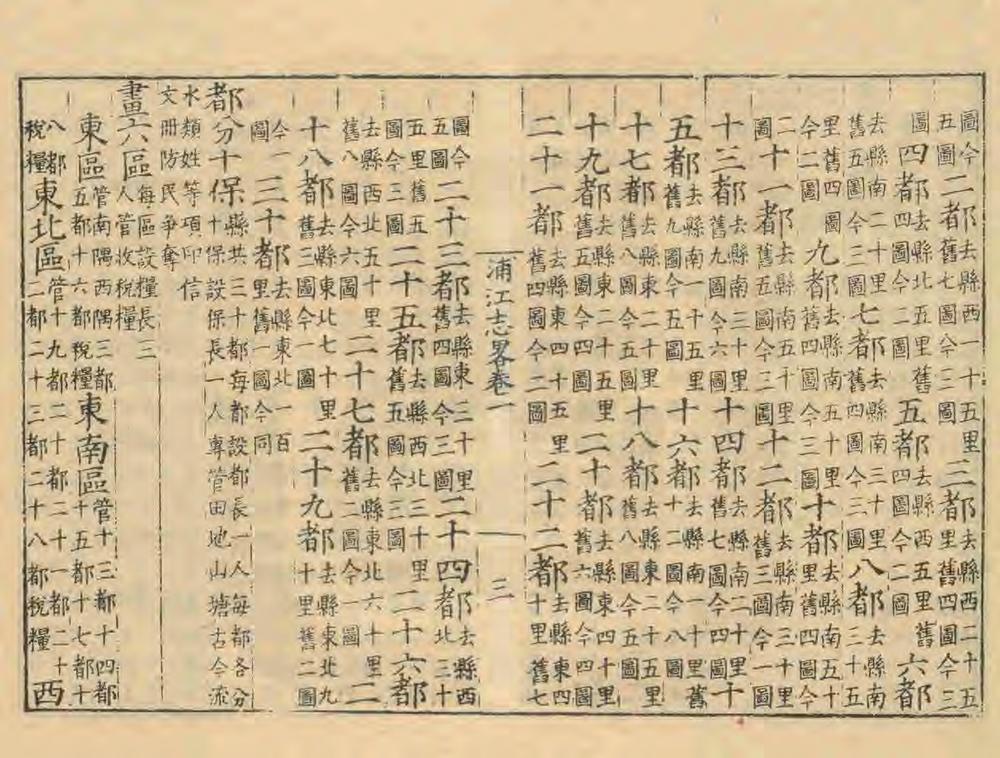 圖今五圖二都去縣西一十五里舊七圖今三圖三都去縣西二十五里舊四圖今三
圖四都去縣北五里舊四圖今二圖五都去縣西五里舊四圖今二圖六都
去縣南二十里舊五圖今三圖七都去縣南三十里舊四圖今三圖八都去縣南三十五
里舊四圖今二圖九都去縣南五十里舊四圖今三圖十都去縣南五十里舊四圖今
二圖十一都去縣南五十里舊五圖今三圖十二都去縣南三十里舊三圖今一圖
十三都去縣南三十里舊九圖今六圖十四都去縣南二十里舊七圖今四圖十
五都去縣南一十五里舊九圖今五圖十六都去縣南一十里舊十二圖今八圖
十七都去縣東二十里舊八圖今五圖十八都去縣東二十五里舊八圖今五圖
十九都去縣東二十五里舊五圖今四圖二十都去縣東四十里舊六圖今四圖
二十一都去縣東四十五里舊四圖今二圖二十二都去縣東四十里舊七
浦江志畧卷一 三
圖今五圖二十三都去縣東三十里舊四圖今三圖二十四都去縣西北三十
五里舊五圖今三圖二十五都去縣西北三十里舊五圖今三圖二十六都
去縣西北五十里舊八圖今六圖二十七都去縣東北六十里舊二圖今一圖二
十八都去縣東北七十里舊三圖今一圖二十九都去縣東北九十里舊二圖
今一圖三十都去縣東北一百里舊一圖今同
都分十保縣共三十都每都設都長一人每都各分十保設保長一人專管田地山塘古今流
水類姓等項印信文冊防民爭奪
畫六區每區設糧長三人管收稅糧
東區管南隅西隅三都五都十六都稅糧東南區管十三都十四都十五都十七都十
八都稅糧東北區管十九都二十都二十一都二十二都二十三都二十八都稅糧西